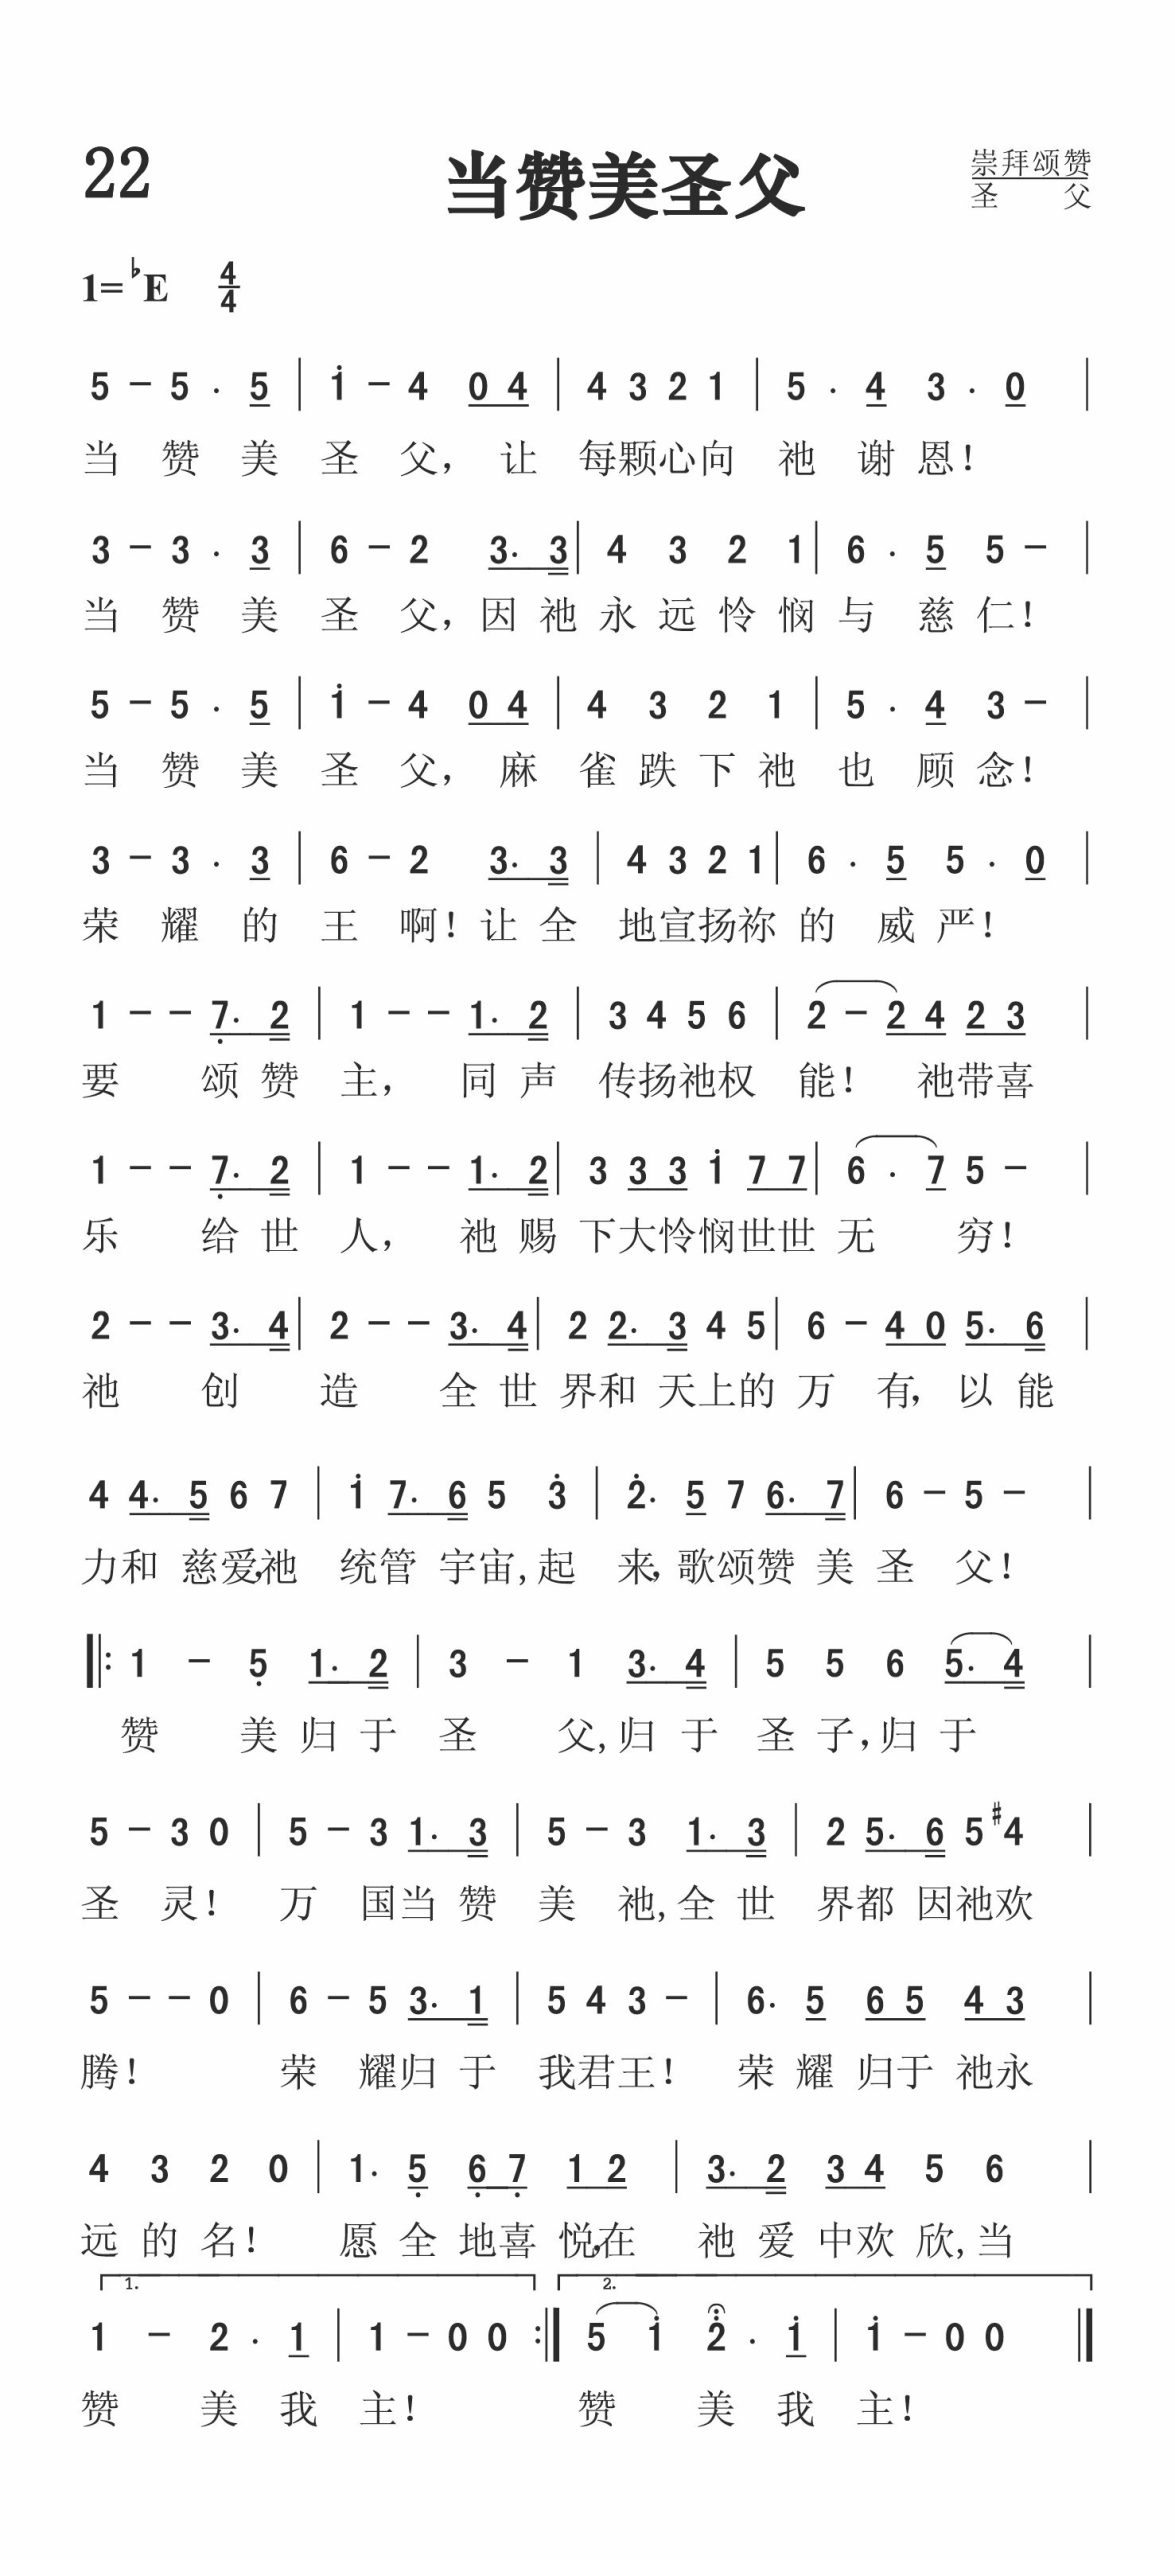 22
当赞美圣父
崇拜颂赞
圣 父
1=♭E 4/4
5 - 5 . 5 | i - 4 0 4 | 4 3 2 1 | 5 . 4 3 . 0 |
当 赞 美 圣 父， 让 每颗心向 祂 谢 恩！
3 - 3 . 3 | 6 - 2 3. 3 | 4 3 2 1 | 6 . 5 5 - |
当 赞 美 圣 父，因 祂 永 远 怜 悯 与 慈 仁！
5 - 5 . 5 | i - 4 0 4 | 4 3 2 1 | 5 . 4 3 - |
当 赞 美 圣 父， 麻 雀 跌 下 祂 也 顾 念！
3 - 3 . 3 | 6 - 2 3. 3 | 4 3 2 1 | 6 . 5 5 . 0 |
荣 耀 的 王 啊！让 全 地宣扬祢 的 威 严！
1 - - 7̣. 2 | 1 - - 1. 2 | 3 4 5 6 | 2 - 2 4 2 3 |
要 颂 赞 主， 同 声 传扬祂权 能！ 祂带喜
1 - - 7̣. 2 | 1 - - 1. 2 | 3 3 3 i 7 7 | 6 . 7 5 - |
乐 给 世 人， 祂 赐 下大怜悯世世 无 穷！
2 - - 3. 4 | 2 - - 3. 4 | 2 2. 3 4 5 | 6 - 4 0 5. 6 |
祂 创 造 全 世 界和 天上的 万 有，以 能
4 4. 5 6 7 | i 7. 6 5 3̇ | 2̇. 5 7 6. 7 | 6 - 5 - |
力和 慈爱，祂 统管 宇宙,起 来，歌颂赞 美 圣 父！
‖: 1 - 5̣ 1. 2 | 3 - 1 3. 4 | 5 5 6 5. 4 |
赞 美 归 于 圣 父,归 于 圣 子，归 于
5 - 3 0 | 5 - 3 1. 3 | 5 - 3 1. 3 | 2 5. 6 5 #4 |
圣 灵！ 万 国当 赞 美 祂,全 世 界都 因祂欢
5 - - 0 | 6 - 5 3. 1 | 5 4 3 - | 6. 5 6 5 4 3 |
腾！ 荣 耀归 于 我君王！ 荣 耀 归于 祂永
4 3 2 0 | 1. 5̣ 6̣ 7̣ 1 2 | 3. 2 3 4 5 6 |
远 的 名！ 愿 全 地喜 悦，在 祂 爱 中欢 欣,当
1. 2.
1 - 2 . 1 | 1 - 0 0 :‖ 5 i 2̇ . i | i - 0 0 ‖
赞 美 我 主！ 赞 美 我 主！